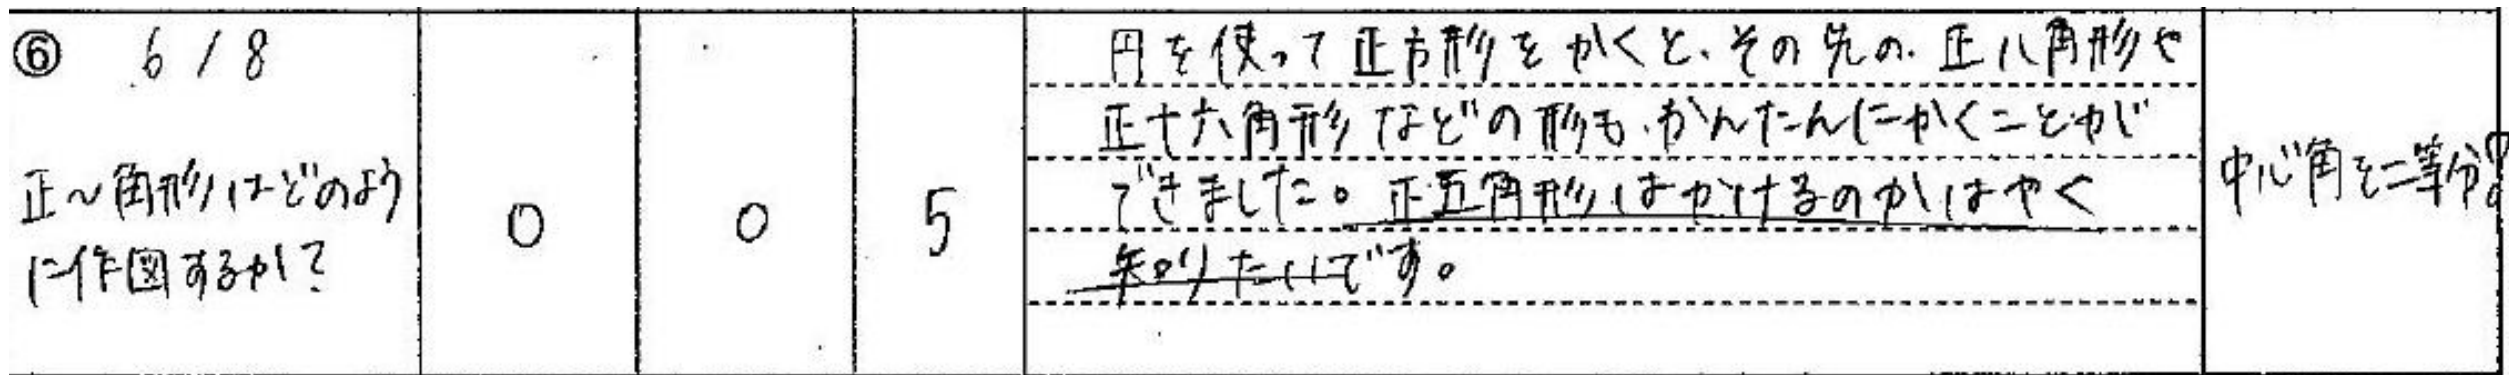 ⑥ 6/8
正〜角形はどのよう
に作図するか?
0
0
5
円を使って正方形をかくと、その先の正八角形や
正十六角形などの形も、かんたんにかくことが
できました。正五角形はかけるのかはやく
知りたいです。
中心角を二等分!